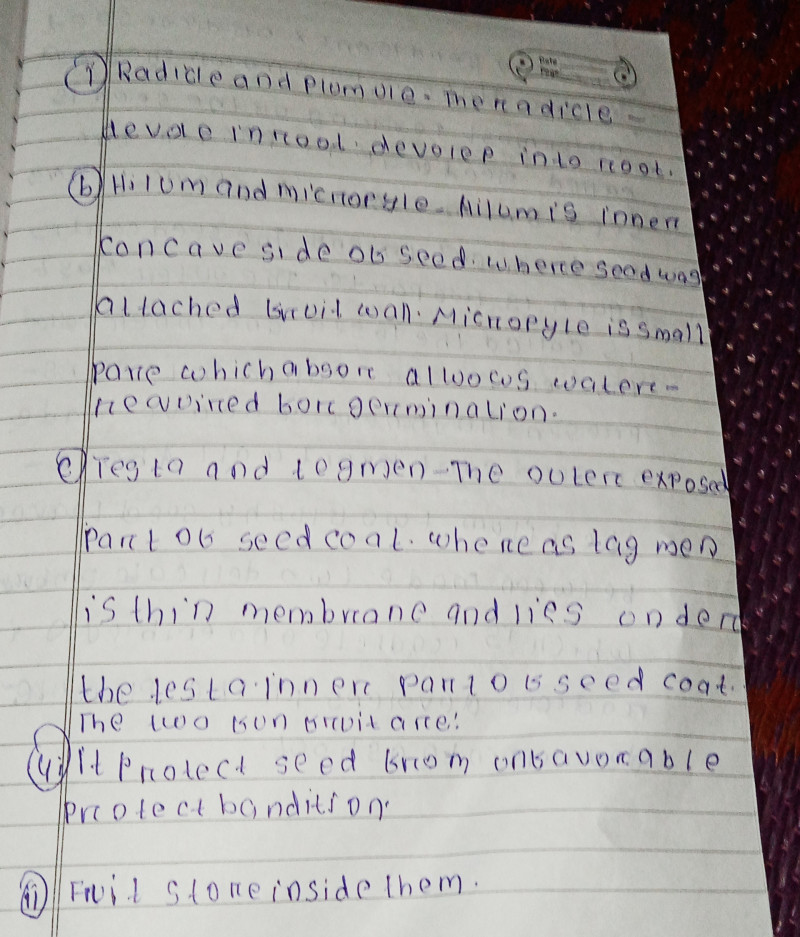 Date
Page
(i) Radicle and Plumule. The radicle -
devole in root. devolep into root.
(b) Hilum and micropyle - hilum is inner
concave side of seed. where seed was
attached fruit wall. Micropyle is small
pare which absore allwows water -
required for germination.
(c) Testa and tegmen - The outer exposed
part of seed coat. where as tagmen
is thin membrane and lies under
the testa. inner part of seed coat.
The two fun fruit are:
(i) It Protect seed from unfavorable
protect bondition.
(ii) Fruit store inside them.